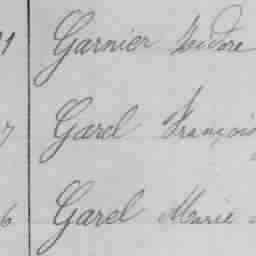 Garnier Isidore
7 Garel François
6 Garel Marie